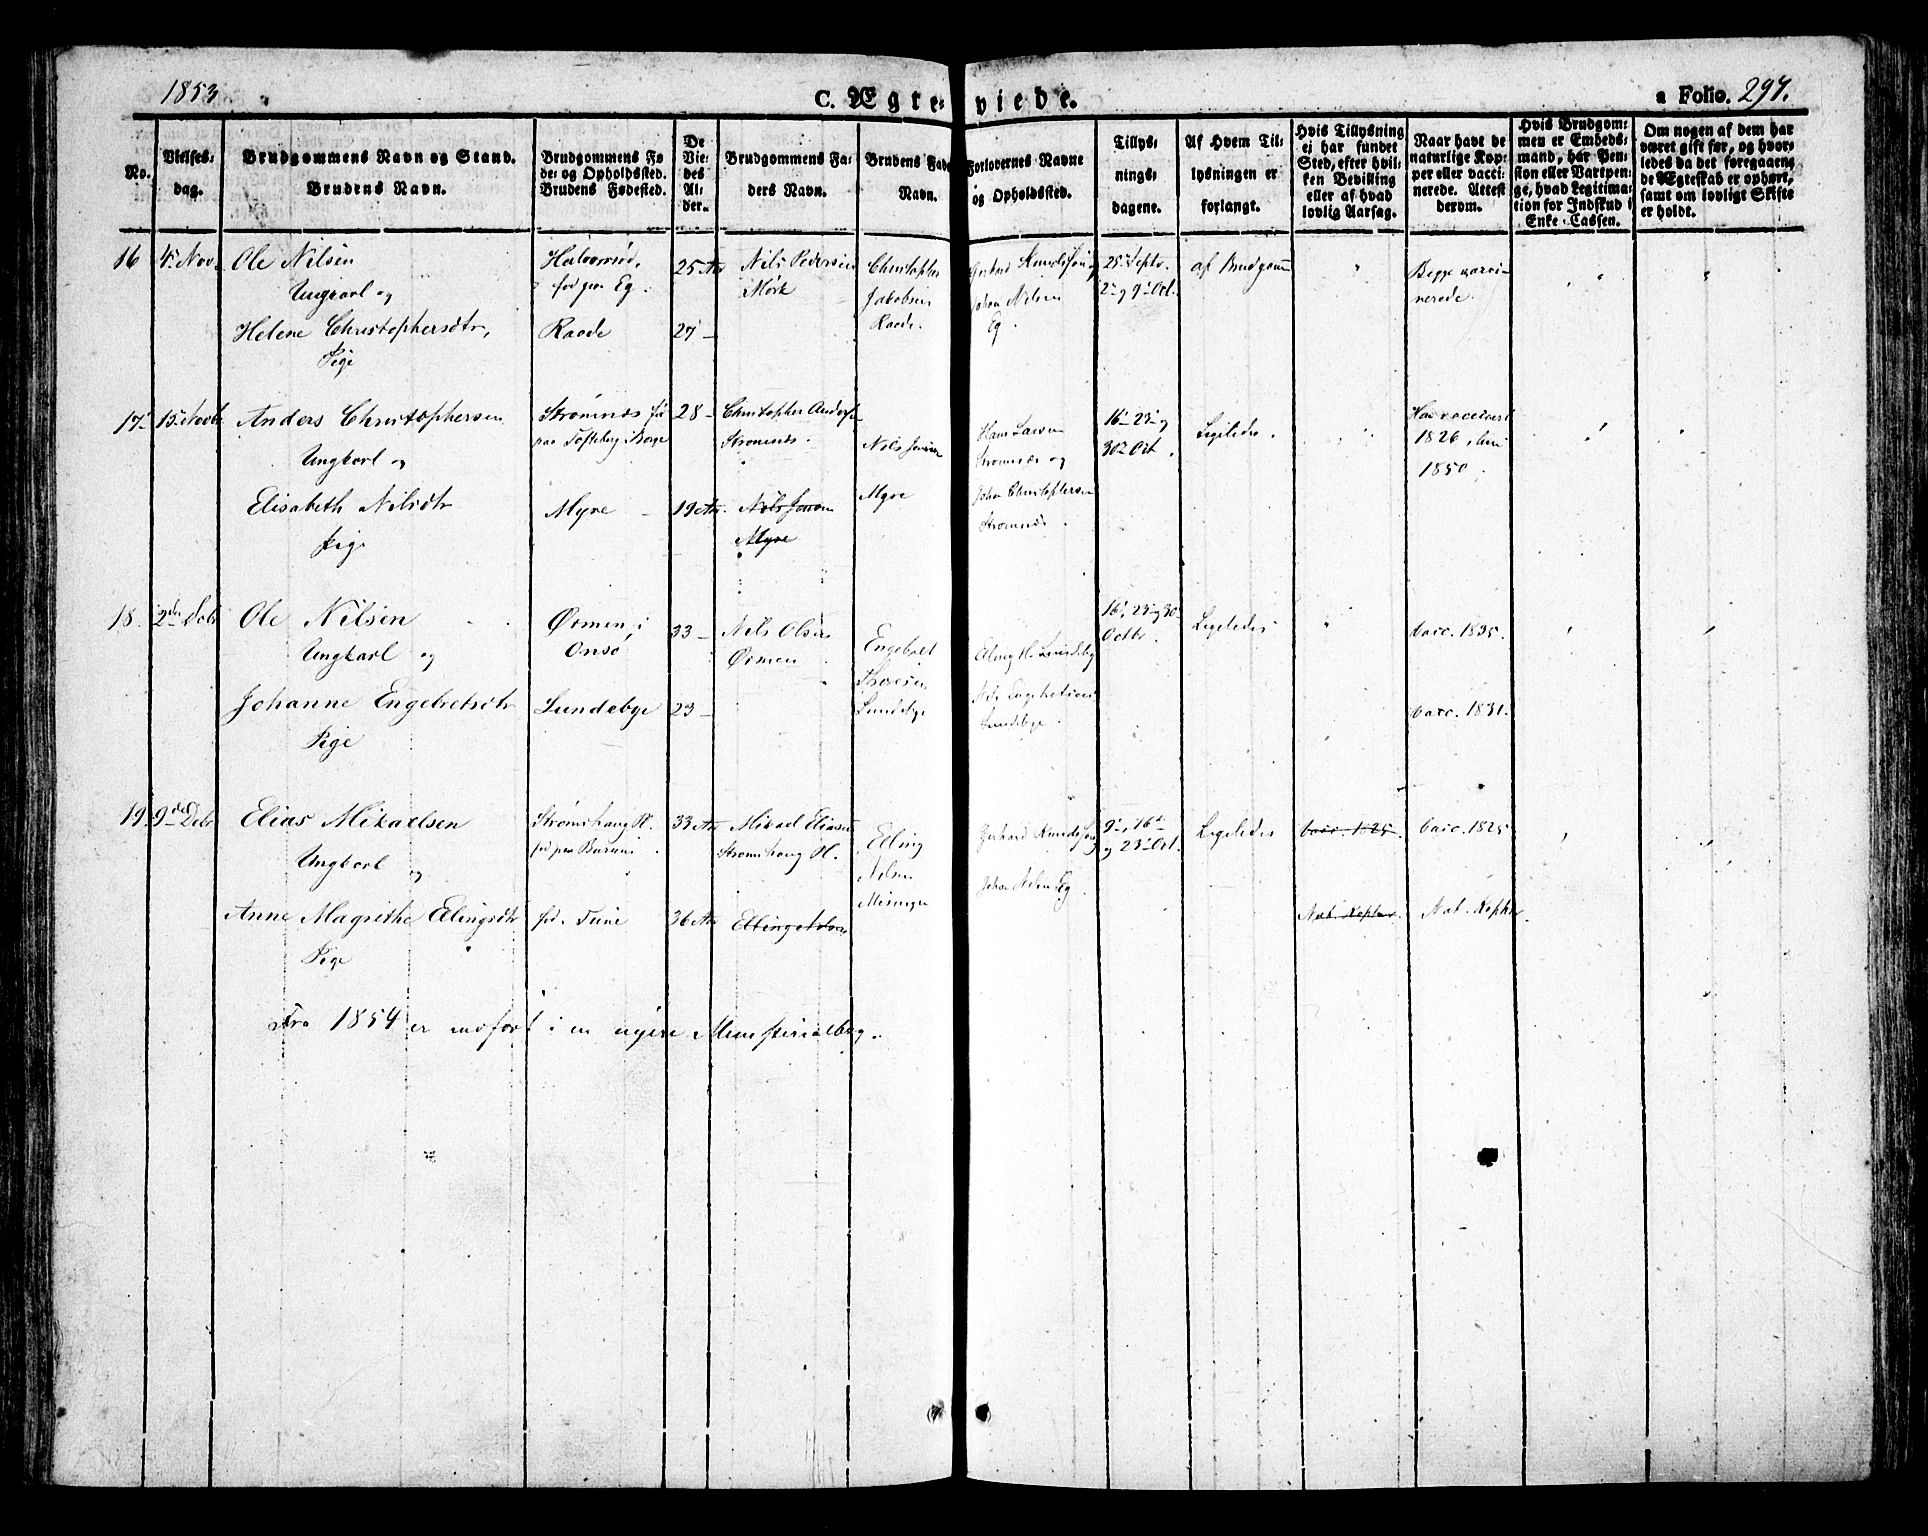 1853
C. Ægte- viede.
a Folio. 297.
No.
Vielses-
dag.
Brudgommens Navn og Stand.
Brudens Navn.
Brudgommens Fø
de- og Opholdssted.
Brudens Fødested.
De
Vie-
des
Al-
der.
Brudgommens Fa-
ders Navn.
Brudens Fade
Navn.
Forlovernes Navne
og Opholdssted.
Tillys-
nings-
dagene.
Af Hvem Til-
lysningen er
forlangt.
Hvis Tillysning
ej har fundet
Sted, efter hvil-
ken Bevilling
eller af hvad
lovlig Aarsag.
Naar have de
naturlige Kop-
per eller vacci-
nerede. Attest
derom.
Hvis Brudgom-
men er Embeds-
mand, har Pen-
sion eller Vartpen-
ge, hvad Legitima-
tion for Indskud i
Enke-Cassen.
Om nogen af dem har
været gift før, og hvor-
ledes da det foregaaen-
de Ægteskab er ophørt,
samt om lovligt Skifte
er holdt.
16 4 Nov. Ole Nilsen
Ungkarl og
Helene Christophersdtr,
Pige
Halvorsrød,
fød paa Eg.
Raade
25 Aar
27
Nils Pedersen
Mørk
Christopher
Jakobsen
Raade.
Gerhard Knudsen og
Johan Nilsen
Eg.
25 Septr.
2 og 9 Oct.
af Brudgom
Begge vacci-
nerede.
17 15 Novbr Anders Christophersen
Ungkarl og
Elisabeth Nilsdtr
Pige
Strømnæs
paa Tofteberg i Borge
Myre
28
19 Aar.
Christopher Anders
Strømnæs.
Nils Jonsen
Myre
Nils Jonsen
Myre
Hans Larsen
Strømnæs og
Johan Christophersen
Strømnæs.
16 23 og
30 Oct.
Ligeledes.
1826
1850.
18. 2den Decbr Ole Nilsen
Ungkarl og
Johanne Engebretsdtr
Pige
Ørmen i
Onsø
Lundebye
33
23
Nils Olsen
Ørmen
Engebret
Thoresen
Lundebye
Lundeby
Nils Engebretsen
Lundebye.
16, 23 og 30
Octbr.
Ligeledes
vacc. 1835.
vacc. 1831.
19. 9de Debr Elias Mikaelsen
Ungkarl og
Anne Magrethe Elingsdtr
Pige
Strømshaug
fød paa
fød. Tune
33 Aar
36 Aar
Mikael Eliasen
Strømshaug
Elling
Elling
Nilsen
Gerhard Knudsen og
Johan Nilsen Eg.
9, 16de
og 23 Oct.
Ligeledes
vacc. 1825.
Nat. Kopper.
vacc. 1825
Nat. Kopper.
Fra 1854 er indført i en nyere Ministerialbog.